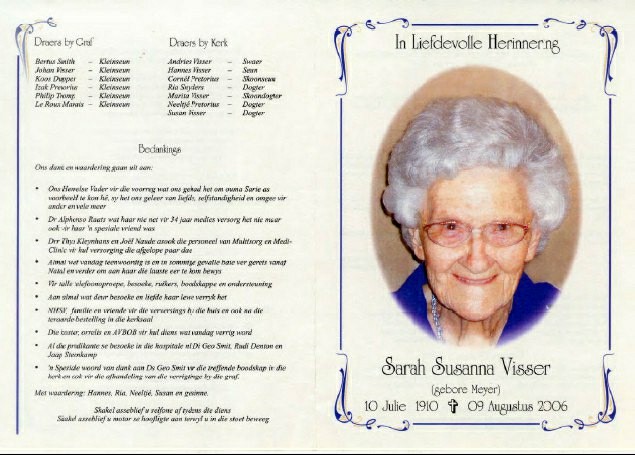 Draers by Graf
Bertus Smith – Kleinseun
Johan Visser – Kleinseun
Koos Dupper – Kleinseun
Izak Pretorius – Kleinseun
Philip Thomp. – Kleinseun
Le Roux Marais – Kleinseun
Draers by Kerk
Andries Visser – Swaer
Hannes Visser – Seun
Cornél Pretorius – Skoonseun
Ria Snyders – Dogter
Marita Visser – Skoondogter
Neeltjé Pretorius – Dogter
Susan Visser – Dogter
Bedankings
Ons dank en waardering gaan uit aan:
• Ons Hemelse Vader vir die voorreg wat ons gehad het om ouma Sarie as
voorbeeld te kon hê, sy het ons geleer van liefde, selfstandigheid en omgee vir
ander en vele meer
• Dr Alphonso Raats wat haar nie net vir 34 jaar medies versorg het nie maar
ook vir haar 'n spesiale vriend was
• Drr Thys Kleynhans en Joël Naude asook die personeel van Multisorg en Medi-
Clinic vir hul versorging die afgelope paar dae
• Almal wat vandag teenwoordig is en in sommige gevalle baie ver gereis vanaf
Natal en verder om aan haar die laaste eer te kom bewys
• Vir talle telefoonoproepe, besoeke, ruikers, boodskappe en ondersteuning
• Aan almal wat deur besoeke en liefde haar lewe verryk het
• NHSV, familie en vriende vir die verversings by die huis en ook na die
teraarde-bestelling in die kerksaal
• Die koster, orrelis en AVBOB vir hul diens wat vandag verrig word
• Al die predikante se besoeke in die hospitale nl Di Geo Smit, Rudi Denton en
Jaap Steenkamp
• 'n Spesiale woord van dank aan Ds Geo Smit vir die treffende boodskap in die
kerk en ook vir die afhandeling van die verrigtinge by die graf.
Met waardering: Hannes, Ria, Neeltjé, Susan en gesinne.
Skakel asseblief u selfone af tydens die diens
Skakel asseblief u motor se hoofligte aan terwyl u in die stoet beweeg
In Liefdevolle Herinnering
Sarah Susanna Visser
(gebore Meyer)
10 Julie 1910 ✞ 09 Augustus 2006